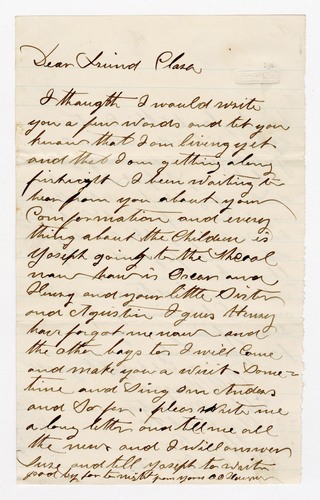 Dear Friend Clara
I thaugth I would write
you a few words and let you
know that I am living yet
and that I am getting along
first rigth I been waiting to
hear from you about your
Comformation and every
thing about the Children is
Yoseph going to the School
now how is Oscar and
Henry and your little Sister
and Agustin I gues Henry
have forgot me now and
the other boys to I will Come
and make you a visit Some-
time and Sing
and So fer. pleas write me
a long letter and tell me all
the news and I will answer
Sure and tell Yoseph to write
good by for to night from yours